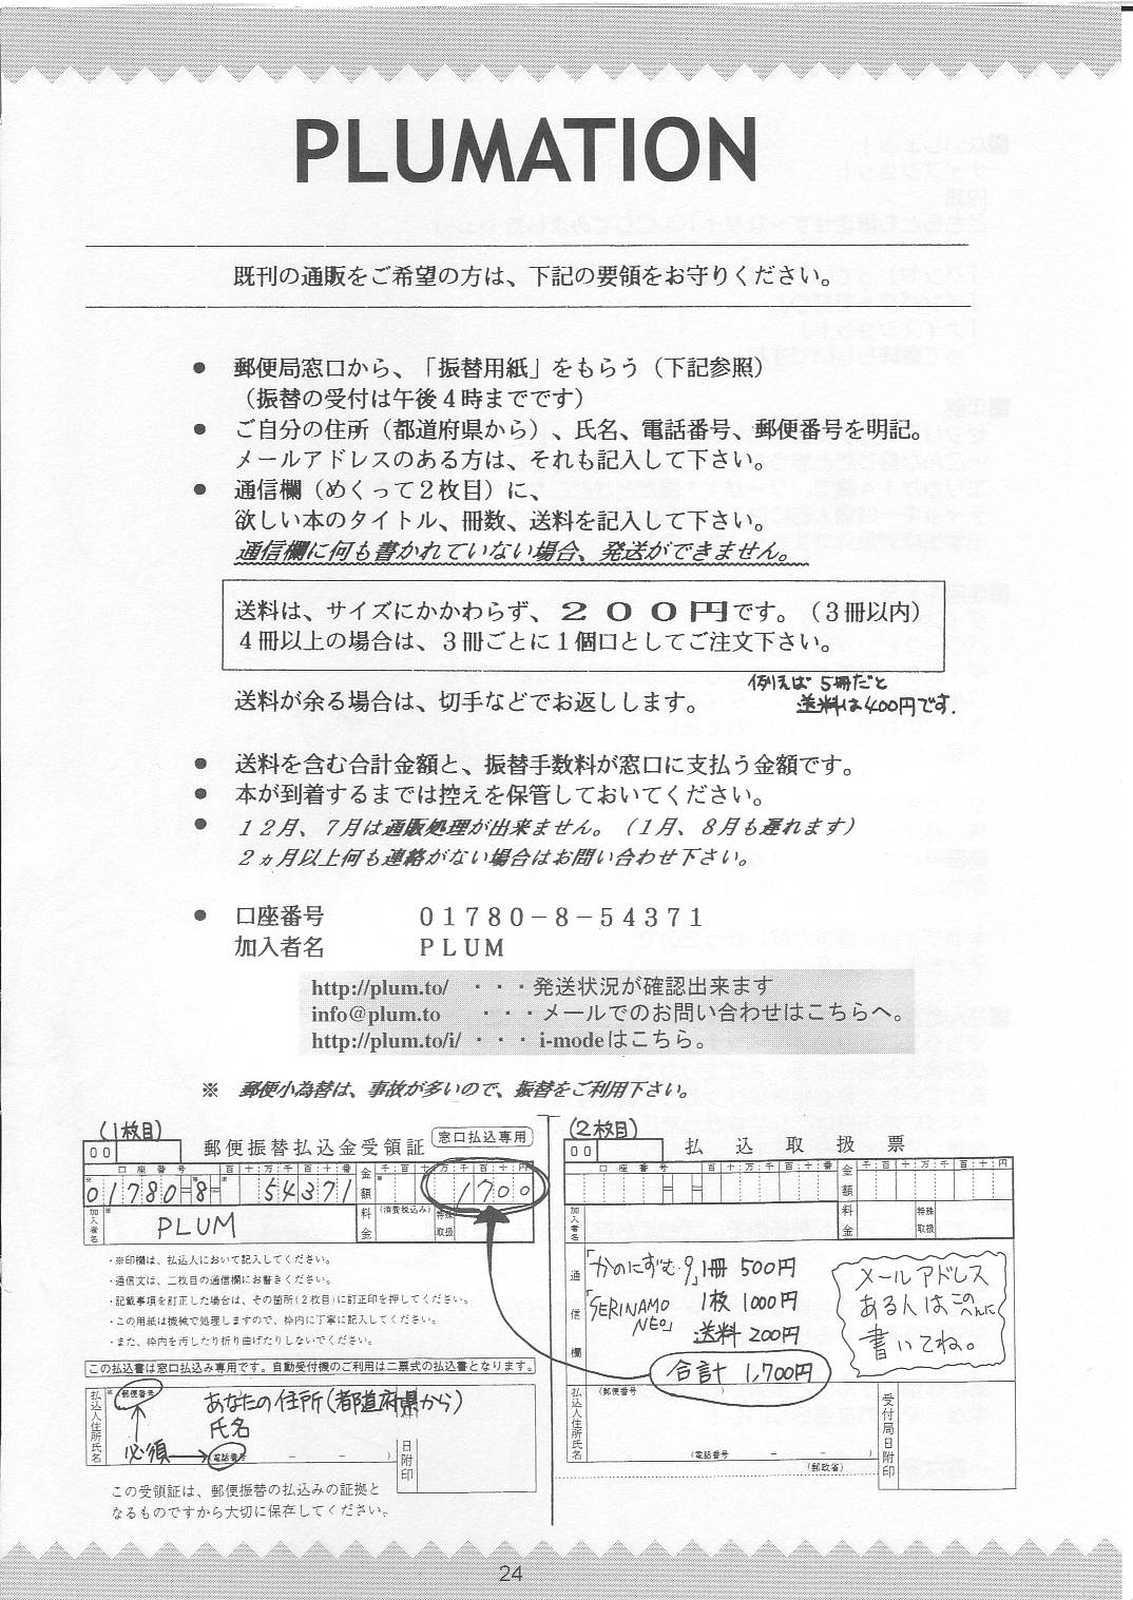 PLUMATION
既刊の通販をご希望の方は、下記の要領をお守りください。
● 郵便局窓口から、「振替用紙」をもらう（下記参照）
（振替の受付は午後４時までです）
● ご自分の住所（都道府県から）、氏名、電話番号、郵便番号を明記。
メールアドレスのある方は、それも記入して下さい。
● 通信欄（めくって２枚目）に、
欲しい本のタイトル、冊数、送料を記入して下さい。
通信欄に何も書かれていない場合、発送ができません。
送料は、サイズにかかわらず、２００円です。（３冊以内）
４冊以上の場合は、３冊ごとに１個口としてご注文下さい。
例えば 5冊だと
送料は400円です.
送料が余る場合は、切手などでお返しします。
● 送料を含む合計金額と、振替手数料が窓口に支払う金額です。
● 本が到着するまでは控えを保管しておいてください。
● １２月、７月は通販処理が出来ません。（１月、８月も遅れます）
２ヵ月以上何も連絡がない場合はお問い合わせ下さい。
● 口座番号 ０１７８０－８－５４３７１
加入者名 ＰＬＵＭ
http://plum.to/ ・・・発送状況が確認出来ます
info@plum.to ・・・メールでのお問い合わせはこちらへ。
http://plum.to/i/ ・・・ i-modeはこちら。
※ 郵便小為替は、事故が多いので、振替をご利用下さい。
(1枚目)
00 郵便振替払込金受領証 窓口払込専用
口座番号 百十万千百十番 金額 千百十万千百十円
01780-8- 54371 1700
加入者名 PLUM 料金 (消費税込み) 特殊取扱
・※印欄は、払込人において記入してください。
・通信文は、二枚目の通信欄にお書きください。
・記載事項を訂正した場合は、その箇所(２枚目)に訂正印を押してください。
・この用紙は機械で処理しますので、枠内に丁寧に記入してください。
・また、枠内を汚したり折り曲げたりしないでください。
この払込書は窓口払込み専用です。自動受付機のご利用は二票式の払込書となります。
払込人住所氏名 ※ 郵便番号 あなたの住所(都道府県から)
氏名
必須 (電話番号 － － ) 日附印
この受領証は、郵便振替の払込みの証拠と
なるものですから大切に保存してください。
(2枚目)
00 払込取扱票
口座番号 百十万千百十番 金額 千百十万千百十円
加入者名 料金 特殊取扱
通信欄
「かのにずむ.9」1冊 500円
「SERINAMO NEO」 1枚 1000円
送料 200円
合計 1,700円
メールアドレス
ある人はこのへんに
書いてね。
払込人住所氏名 (郵便番号 )
(電話番号 － － )
(郵政省)
受付局日附印
24